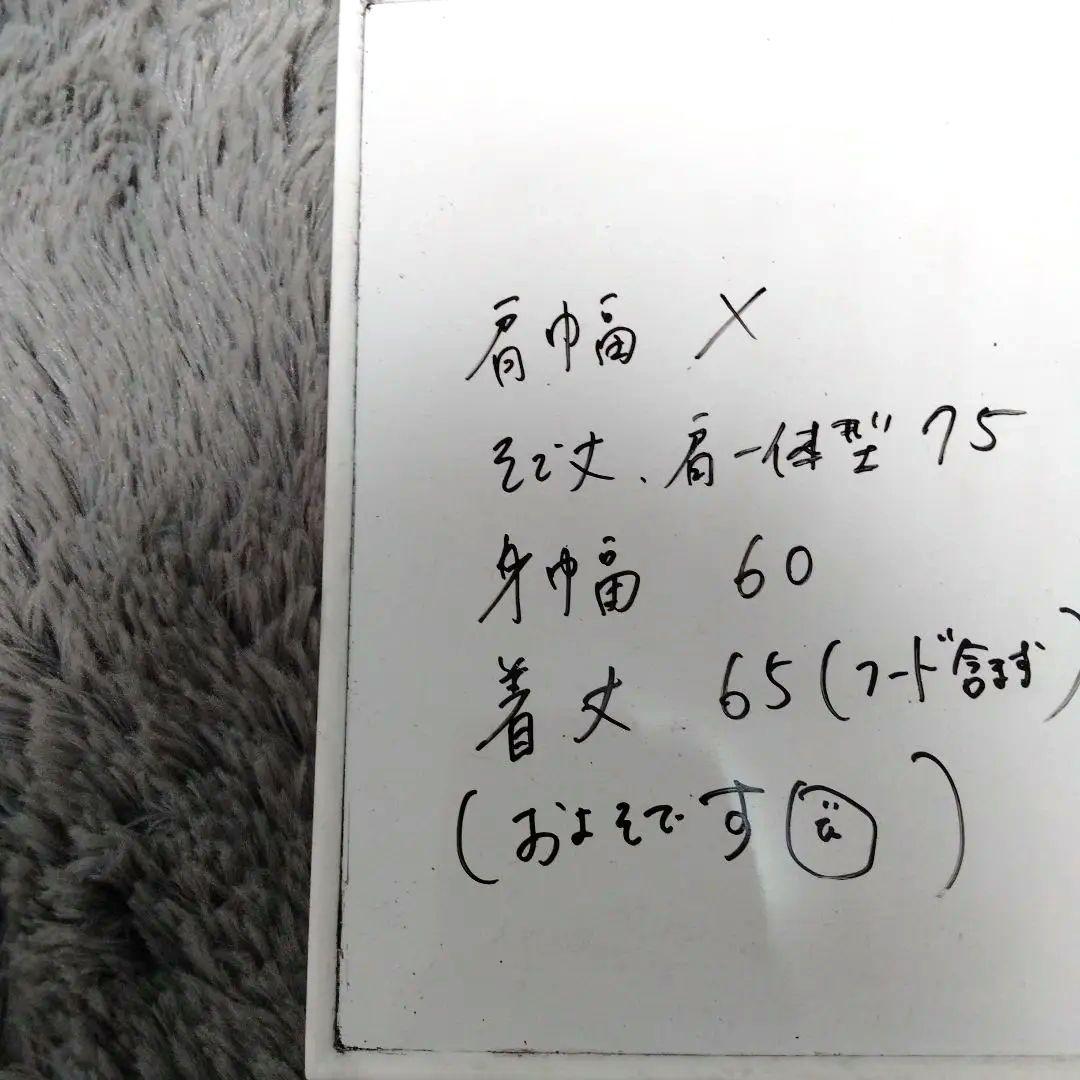 肩巾幅 ×
そで丈、肩一体型 75
身巾幅 60
着丈 65(フード含まず)
(およそです )